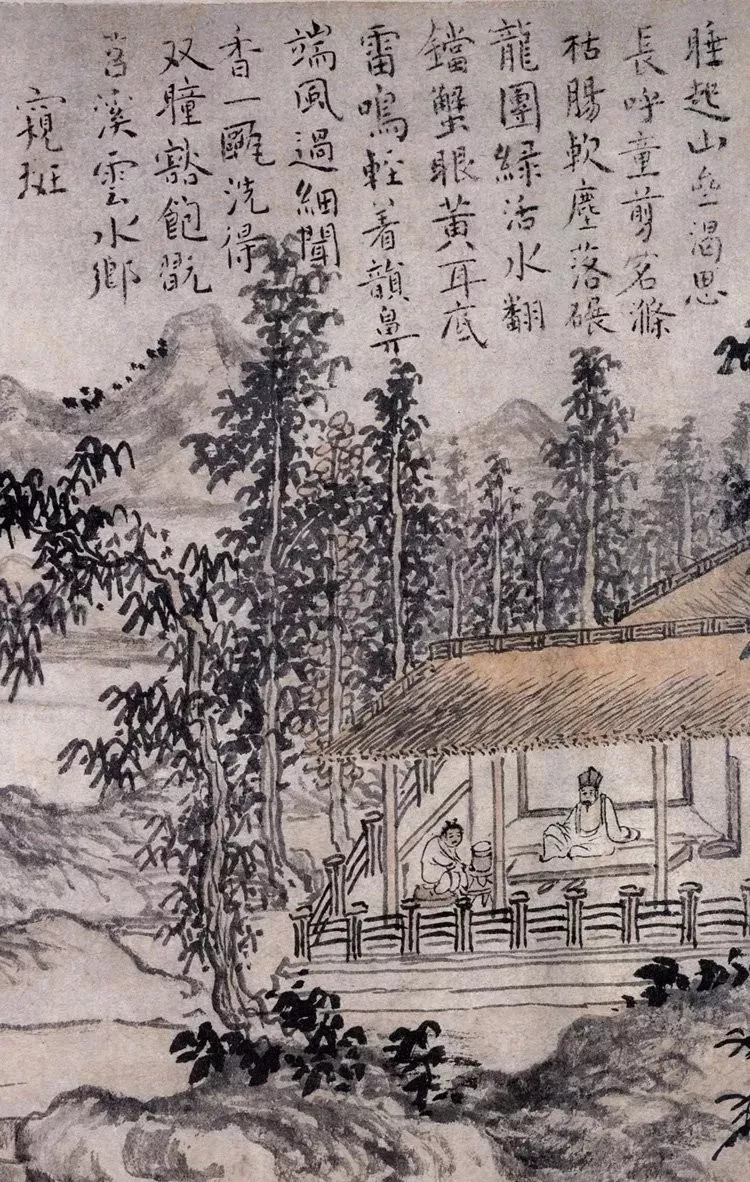 睡起山垒渴思
長呼童剪茗滌
枯腸軟塵落碾
龍團緑活水翻
鐺蟹眼黄耳底
雷鳴輕着韻鼻
端風過細聞
香一甌洗得
双瞳豁飽翫
苕溪雲水鄉
窺斑